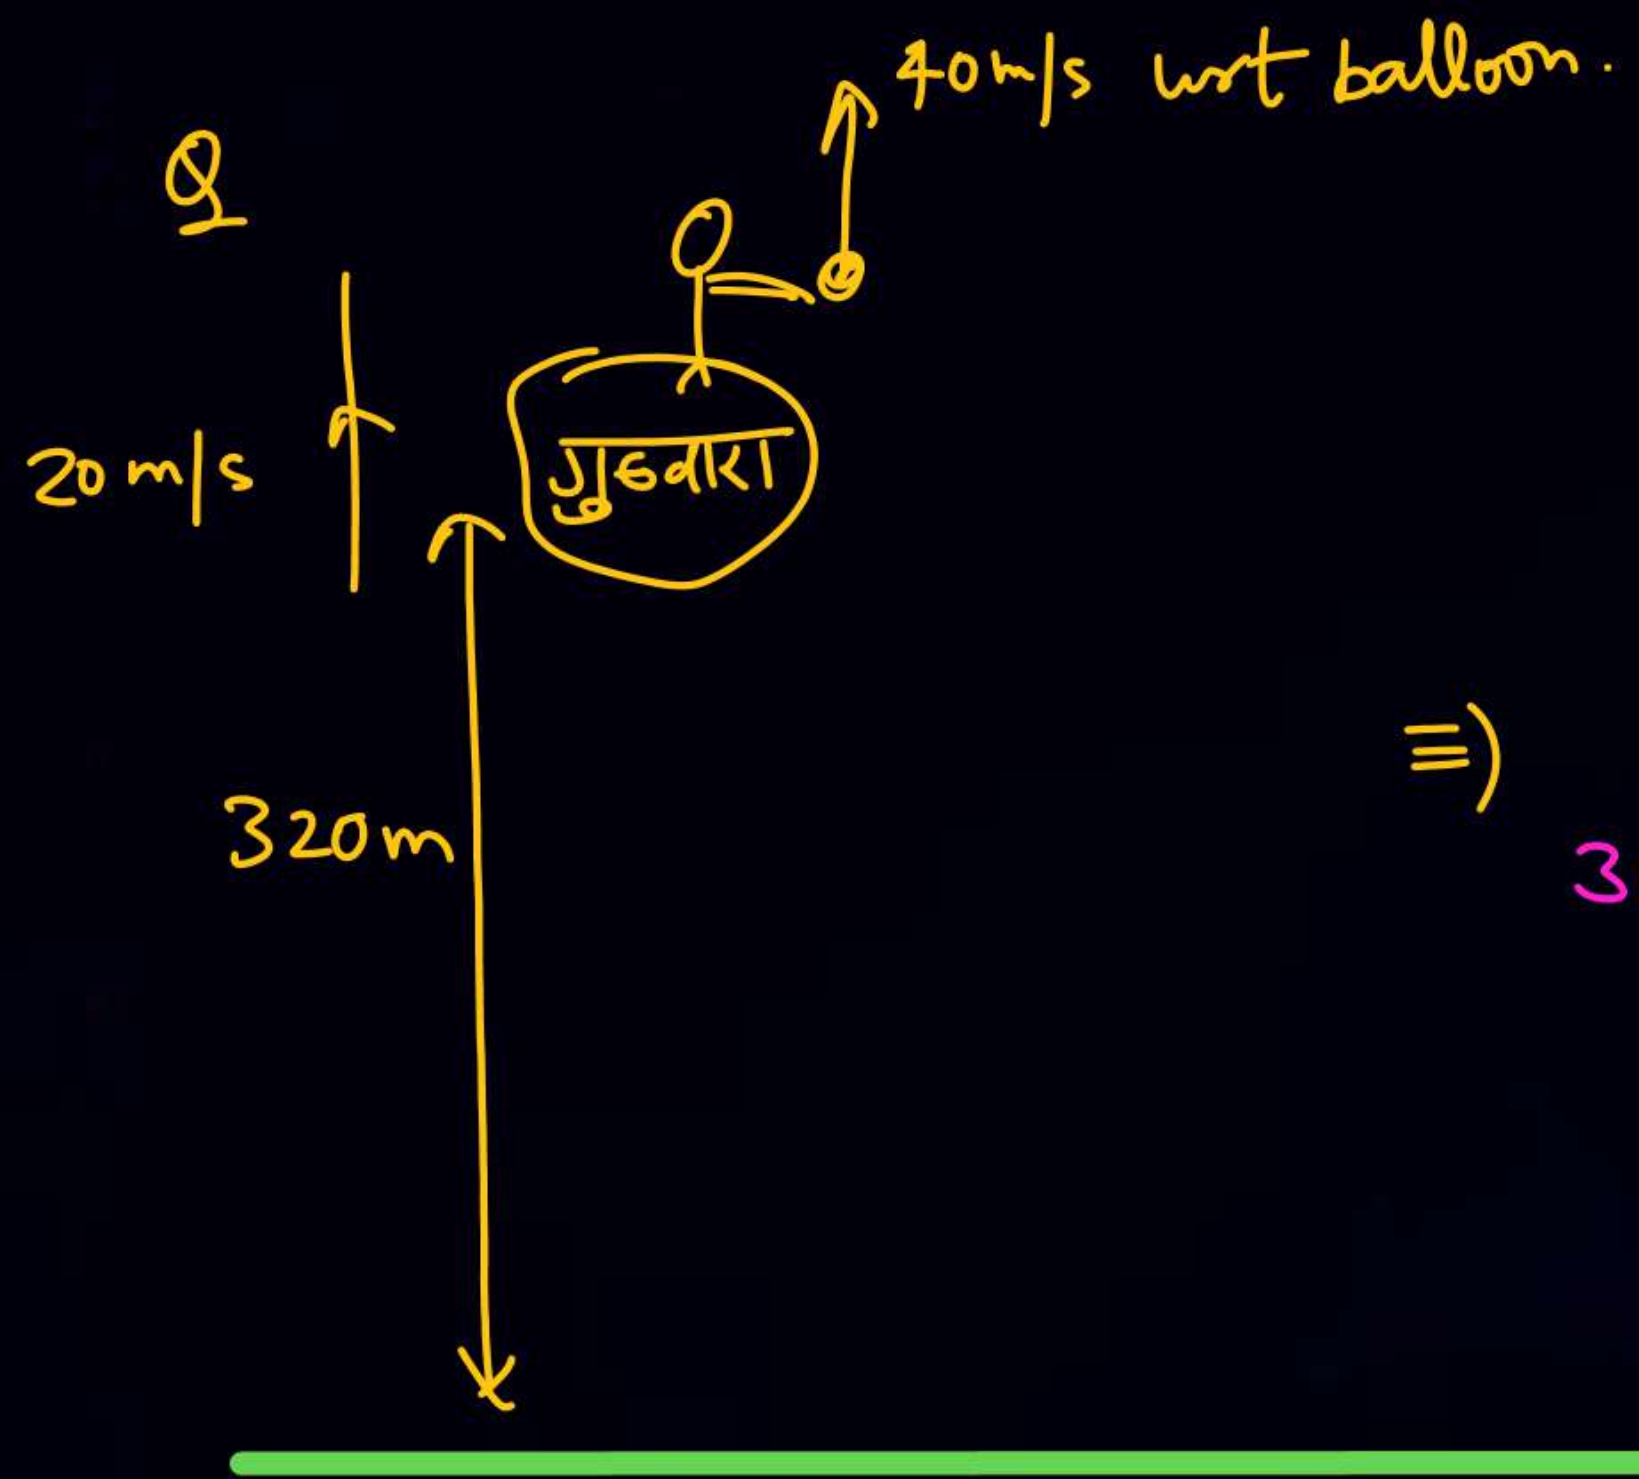 40m/s wrt balloon.
Q
20 m/s
गुब्बारा
320m
≡)
3